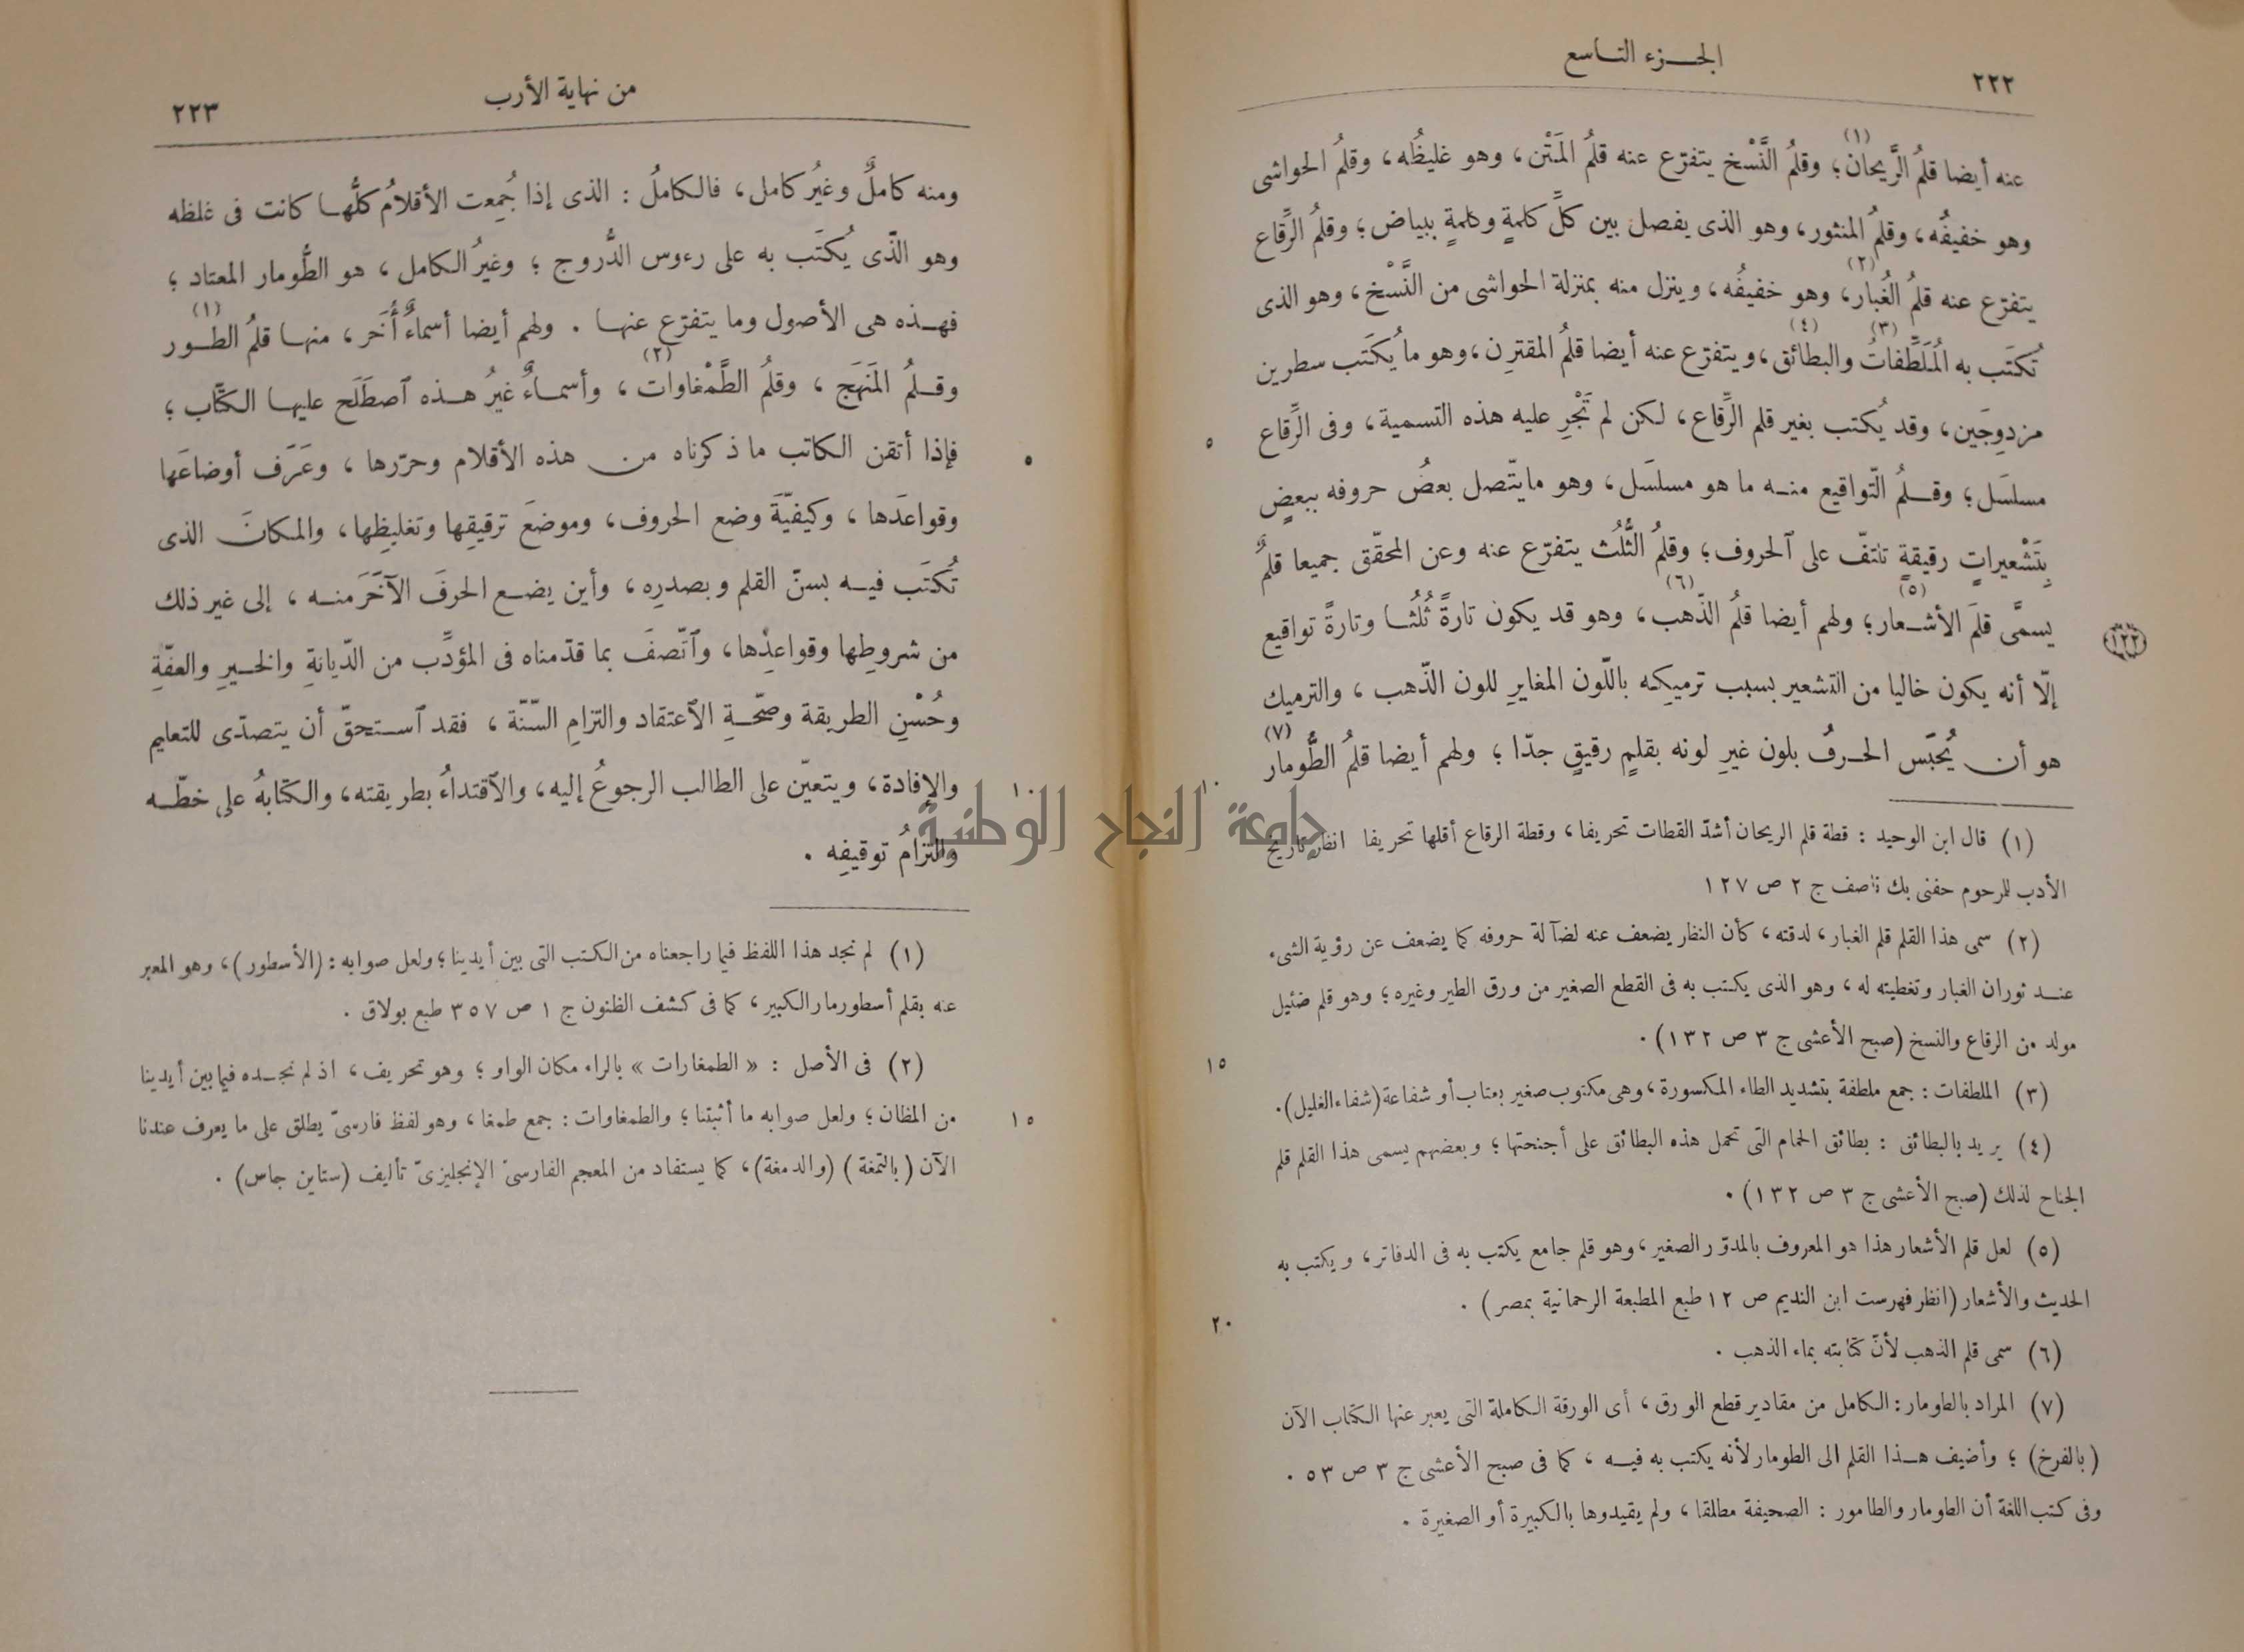 ٢٢٢
الجـــزء التـــاسع
عنه أيضا قلمُ الرَّيحان(١)؛ وقلمُ النَّسْخ يتفرّع عنه قلمُ المَتْن، وهو غليظُه، وقلمُ الحواشى
وهو خفيفُه، وقلمُ المنثور، وهو الذى يفصل بين كلّ كلمةٍ وكلمةٍ ببياض؛ وقلمُ الرِّقاع
يتفرّع عنه قلمُ الغُبار(٢)، وهو خفيفُه، وينزل منه بمنزلة الحواشى من النَّسْخ، وهو الذى
تُكتَب به المُلَطِّفاتُ(٣) والبطائق(٤)، ويتفرّع عنه أيضا قلمُ المقترِن، وهو ما يُكتَب سطرين
مزدوِجَين، وقد يُكتب بغير قلم الرِّقاع، لكن لم تَجْرِ عليه هذه التسمية، وفى الرِّقاع
٥
مسلسَل؛ وقـلمُ التّواقيع منـه ما هو مسلسَل، وهو مايتّصل بعضُ حروفه ببعضٍ
بِتَشْعيراتٍ رقيقةٍ تلتفّ على ٱلحروف؛ وقلمُ الثُّلُث يتفرّع عنه وعن المحقّق جميعا قلمٌ
يسمَّى قلَم الأشـعار(٥)؛ ولهم أيضا قلمُ الذّهب(٦)، وهو قد يكون تارةً ثُلُثـا وتارةً تواقيع
(١٢٢)
إلّا أنه يكون خاليا من التشعير بسبب ترميكِه باللّون المغايرِ للون الذّهب، والترميك
هو أن يُحبَس الحـرفُ بلون غيرِ لونه بقلمٍ رقيقٍ جدّا؛ ولهم أيضا قلمُ الطُّومار(٧)
١٠
(١) قال ابن الوحيد : قطة قلم الريحان أشدّ القطات تحريفا، وقطة الرقاع أقلها تحريفا انظر تاريخ
الأدب للرحوم حفنى بك ناصف ج ٢ ص ١٢٧
(٢) سمى هذا القلم قلم الغبار، لدقته، كأن النظر يضعف عنه لضآلة حروفه كما يضعف عن رؤية الشىء
عنـد ثوران الغبار وتغطيته له، وهو الذى يكتب به فى القطع الصغير من ورق الطير وغيره؛ وهو قلم ضئيل
مولد من الرقاع والنسخ (صبح الأعشى ج ٣ ص ١٣٢).
١٥
(٣) الملطفات : جمع ملطفة بتشديد الطاء المكسورة، وهى مكتوب صغير بعتاب أو شفاعة (شفاء الغليل).
(٤) يريد بالبطائق : بطائق الحمام التى تحمل هذه البطائق على أجنحتها؛ وبعضهم يسمى هذا القلم قلم
الجناح لذلك (صبح الأعشى ج ٣ ص ١٣٢).
(٥) لعل قلم الأشعار هذا هو المعروف بالمدوّر الصغير، وهو قلم جامع يكتب به فى الدفاتر، ويكتب به
الحديث والأشعار (انظر فهرست ابن النديم ص ١٢ طبع المطبعة الرحمانية بمصر).
٢٠
(٦) سمى قلم الذهب لأنّ كتابته بماء الذهب.
(٧) المراد بالطومار : الكامل من مقادير قطع الورق، أى الورقة الكاملة التى يعبر عنها الكتاب الآن
(بالفرخ)؛ وأضيف هـذا القلم الى الطومار لأنه يكتب به فيـه، كما فى صبح الأعشى ج ٣ ص ٥٣.
وفى كتب اللغة أن الطومار والطامور : الصحيفة مطلقا، ولم يقيدوها بالكبيرة أو الصغيرة.
من نهاية الأرب
٢٢٣
ومنه كاملٌ وغيرُ كامل، فالكاملُ : الذى إذا جُمِعت الأقلامُ كلُّهـا كانت فى غلظه
وهو الّذى يُكتَب به على رءوس الدُّروج؛ وغيرُ الكامل، هو الطُّومار المعتاد؛
فهـذه هى الأصول وما يتفرّع عنهـا. ولهم أيضا أسماءٌ أُخَر، منهـا قلمُ الطـور(١)
وقـلمُ المَنهَج، وقلمُ الطَّمْغاوات(٢)، وأسمـاءٌ غيرُ هـذه ٱصطَلَح عليهـا الكتّاب؛
فإذا أتقن الكاتب ما ذكرناه من هذه الأقلام وحرّرها، وعَرَف أوضاعَها
٥
وقواعدَها، وكيفيّةَ وضع الحروف، وموضعَ ترقيقِها وتغليظِها، والمكانَ الذى
تُكتَب فيـه بسنّ القلم وبصدرِه، وأين يضـع الحرفَ الآخَرَ منـه، إلى غير ذلك
من شروطِها وقواعدِها، وٱتّصفَ بما قدّمناه فى المؤدِّب من الدّيانةِ والخـيرِ والعفّةِ
وحُسْنِ الطريقة وصحّـةِ الٱعتقاد والتزامِ السّنّة، فقد ٱستحقّ أن يتصدّى للتعليم
والإفادة، ويتعيّن على الطالب الرجوعُ إليه، والٱقتداءُ بطريقته، والكتابةُ على خطّـه
١٠
والتزامُ توقيفِه.
جامعة النجاح الوطنية
(١) لم نجد هذا اللفظ فيما راجعناه من الكتب التى بين أيدينا؛ ولعل صوابه : (الأسطور)، وهو المعبر
عنه بقلم أسطورمار الكبير، كما فى كشف الظنون ج ١ ص ٣٥٧ طبع بولاق.
(٢) فى الأصل : «الطمغارات» بالراء مكان الواو؛ وهو تحريف، اذ لم نجـده فيما بين أيدينا
من المظان؛ ولعل صوابه ما أثبتنا؛ والطمغاوات : جمع طمغا، وهو لفظ فارسىّ يطلق على ما يعرف عندنا
١٥
الآن (بالتمغة) (والدمغة)، كما يستفاد من المعجم الفارسىّ الإنجليزىّ تأليف (ستاين جاس).